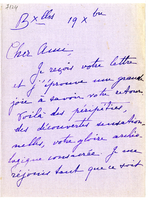 Bxelles 19 Xbre
Cher Ami
Je reçois votre lettre
et j'éprouve une grande
joie à savoir votre retour
Voilà des péripéties,
des découvertes sensation
nelles, votre gloire archéo
logique consacrée. Je me
réjouis tant que ce soit